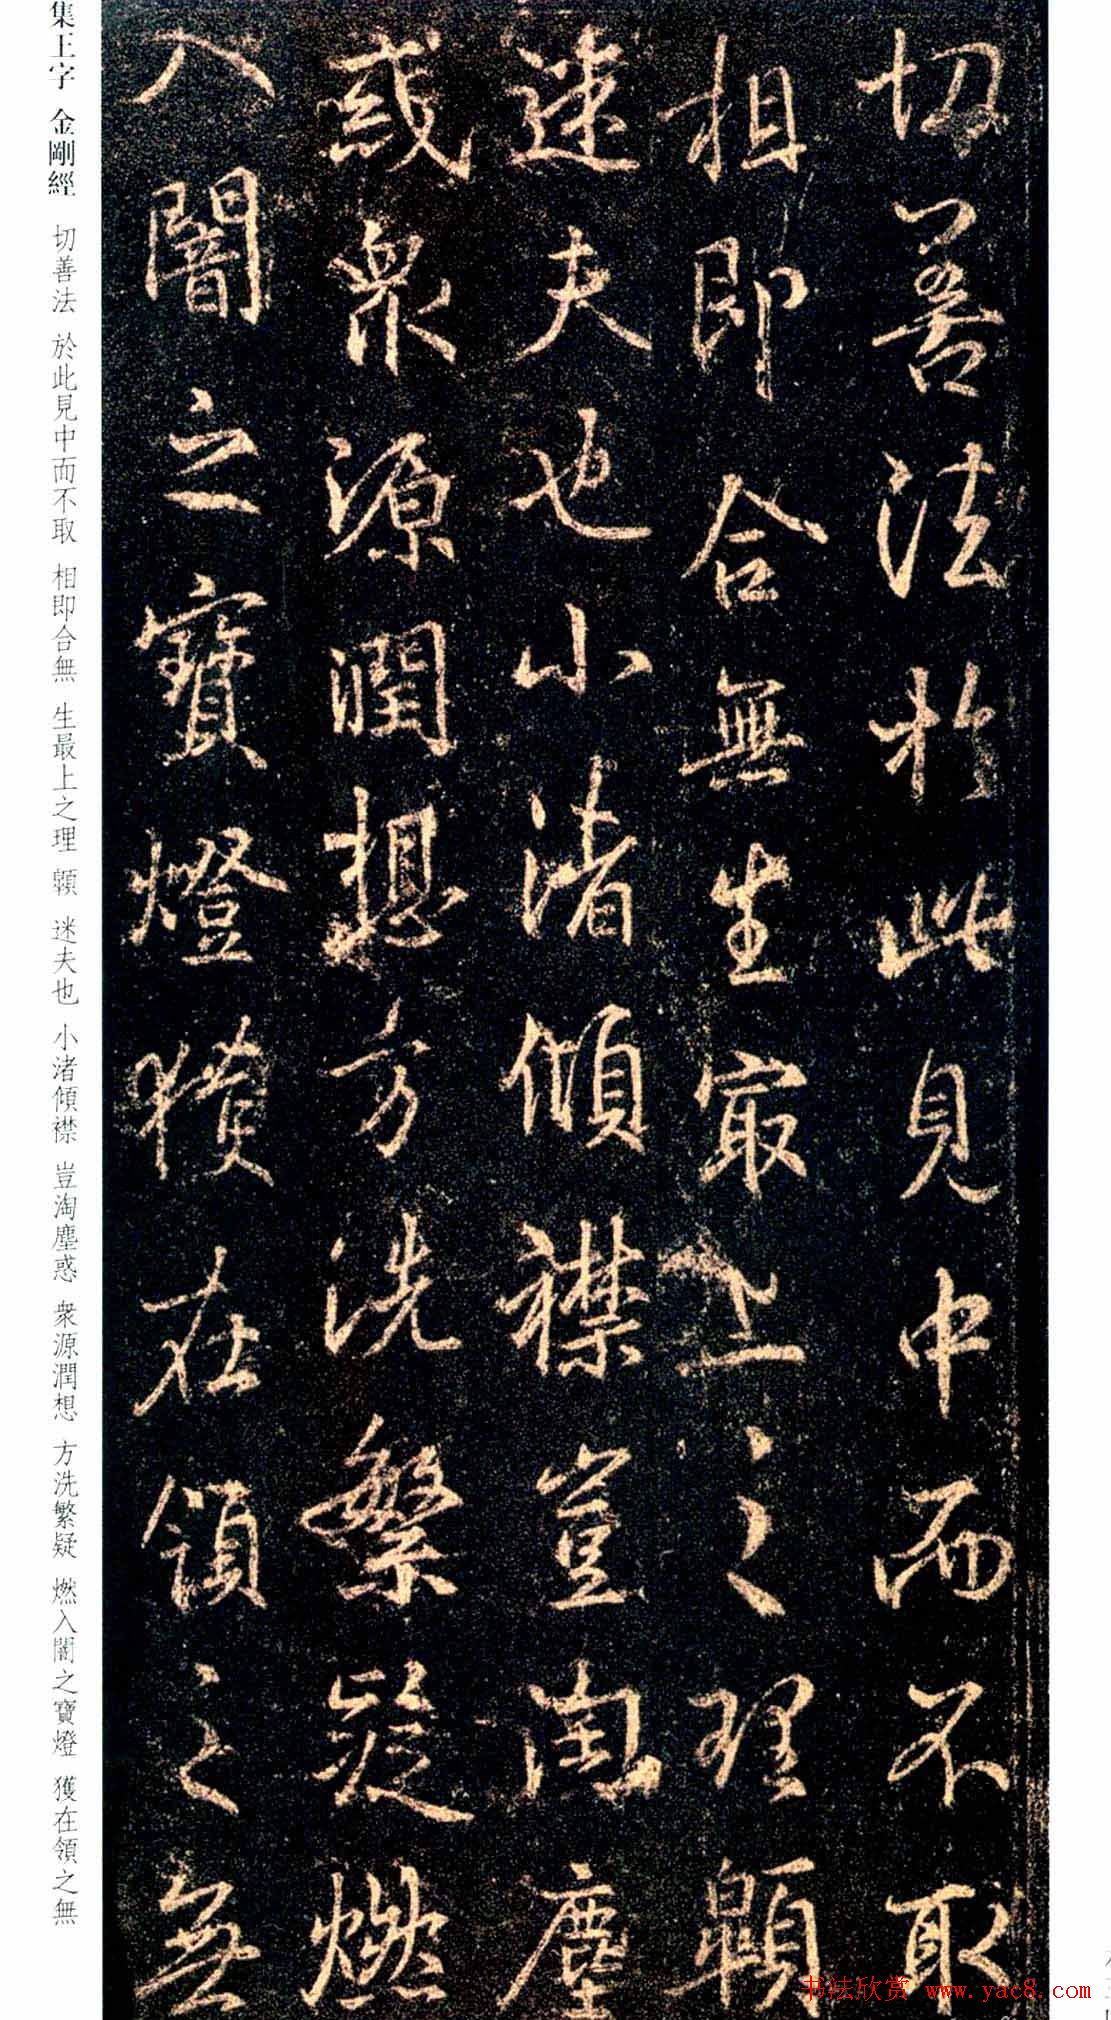 切善法於此見中而不取
相即合無生最上之理顥
迷夫也小渚傾襟豈淘塵
惑衆源潤想方洗繁疑燃
入闇之寶燈獲在領之無
集王字 金剛經 切善法 於此見中而不取 相即合無 生最上之理 顥 迷夫也 小渚傾襟 豈淘塵惑 衆源潤想 方洗繁疑 燃入闇之寶燈 獲在領之無
书法欣赏 www.yac8.com